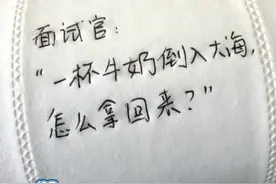 面试官：
“一杯牛奶倒入大海，
怎么拿回来？”